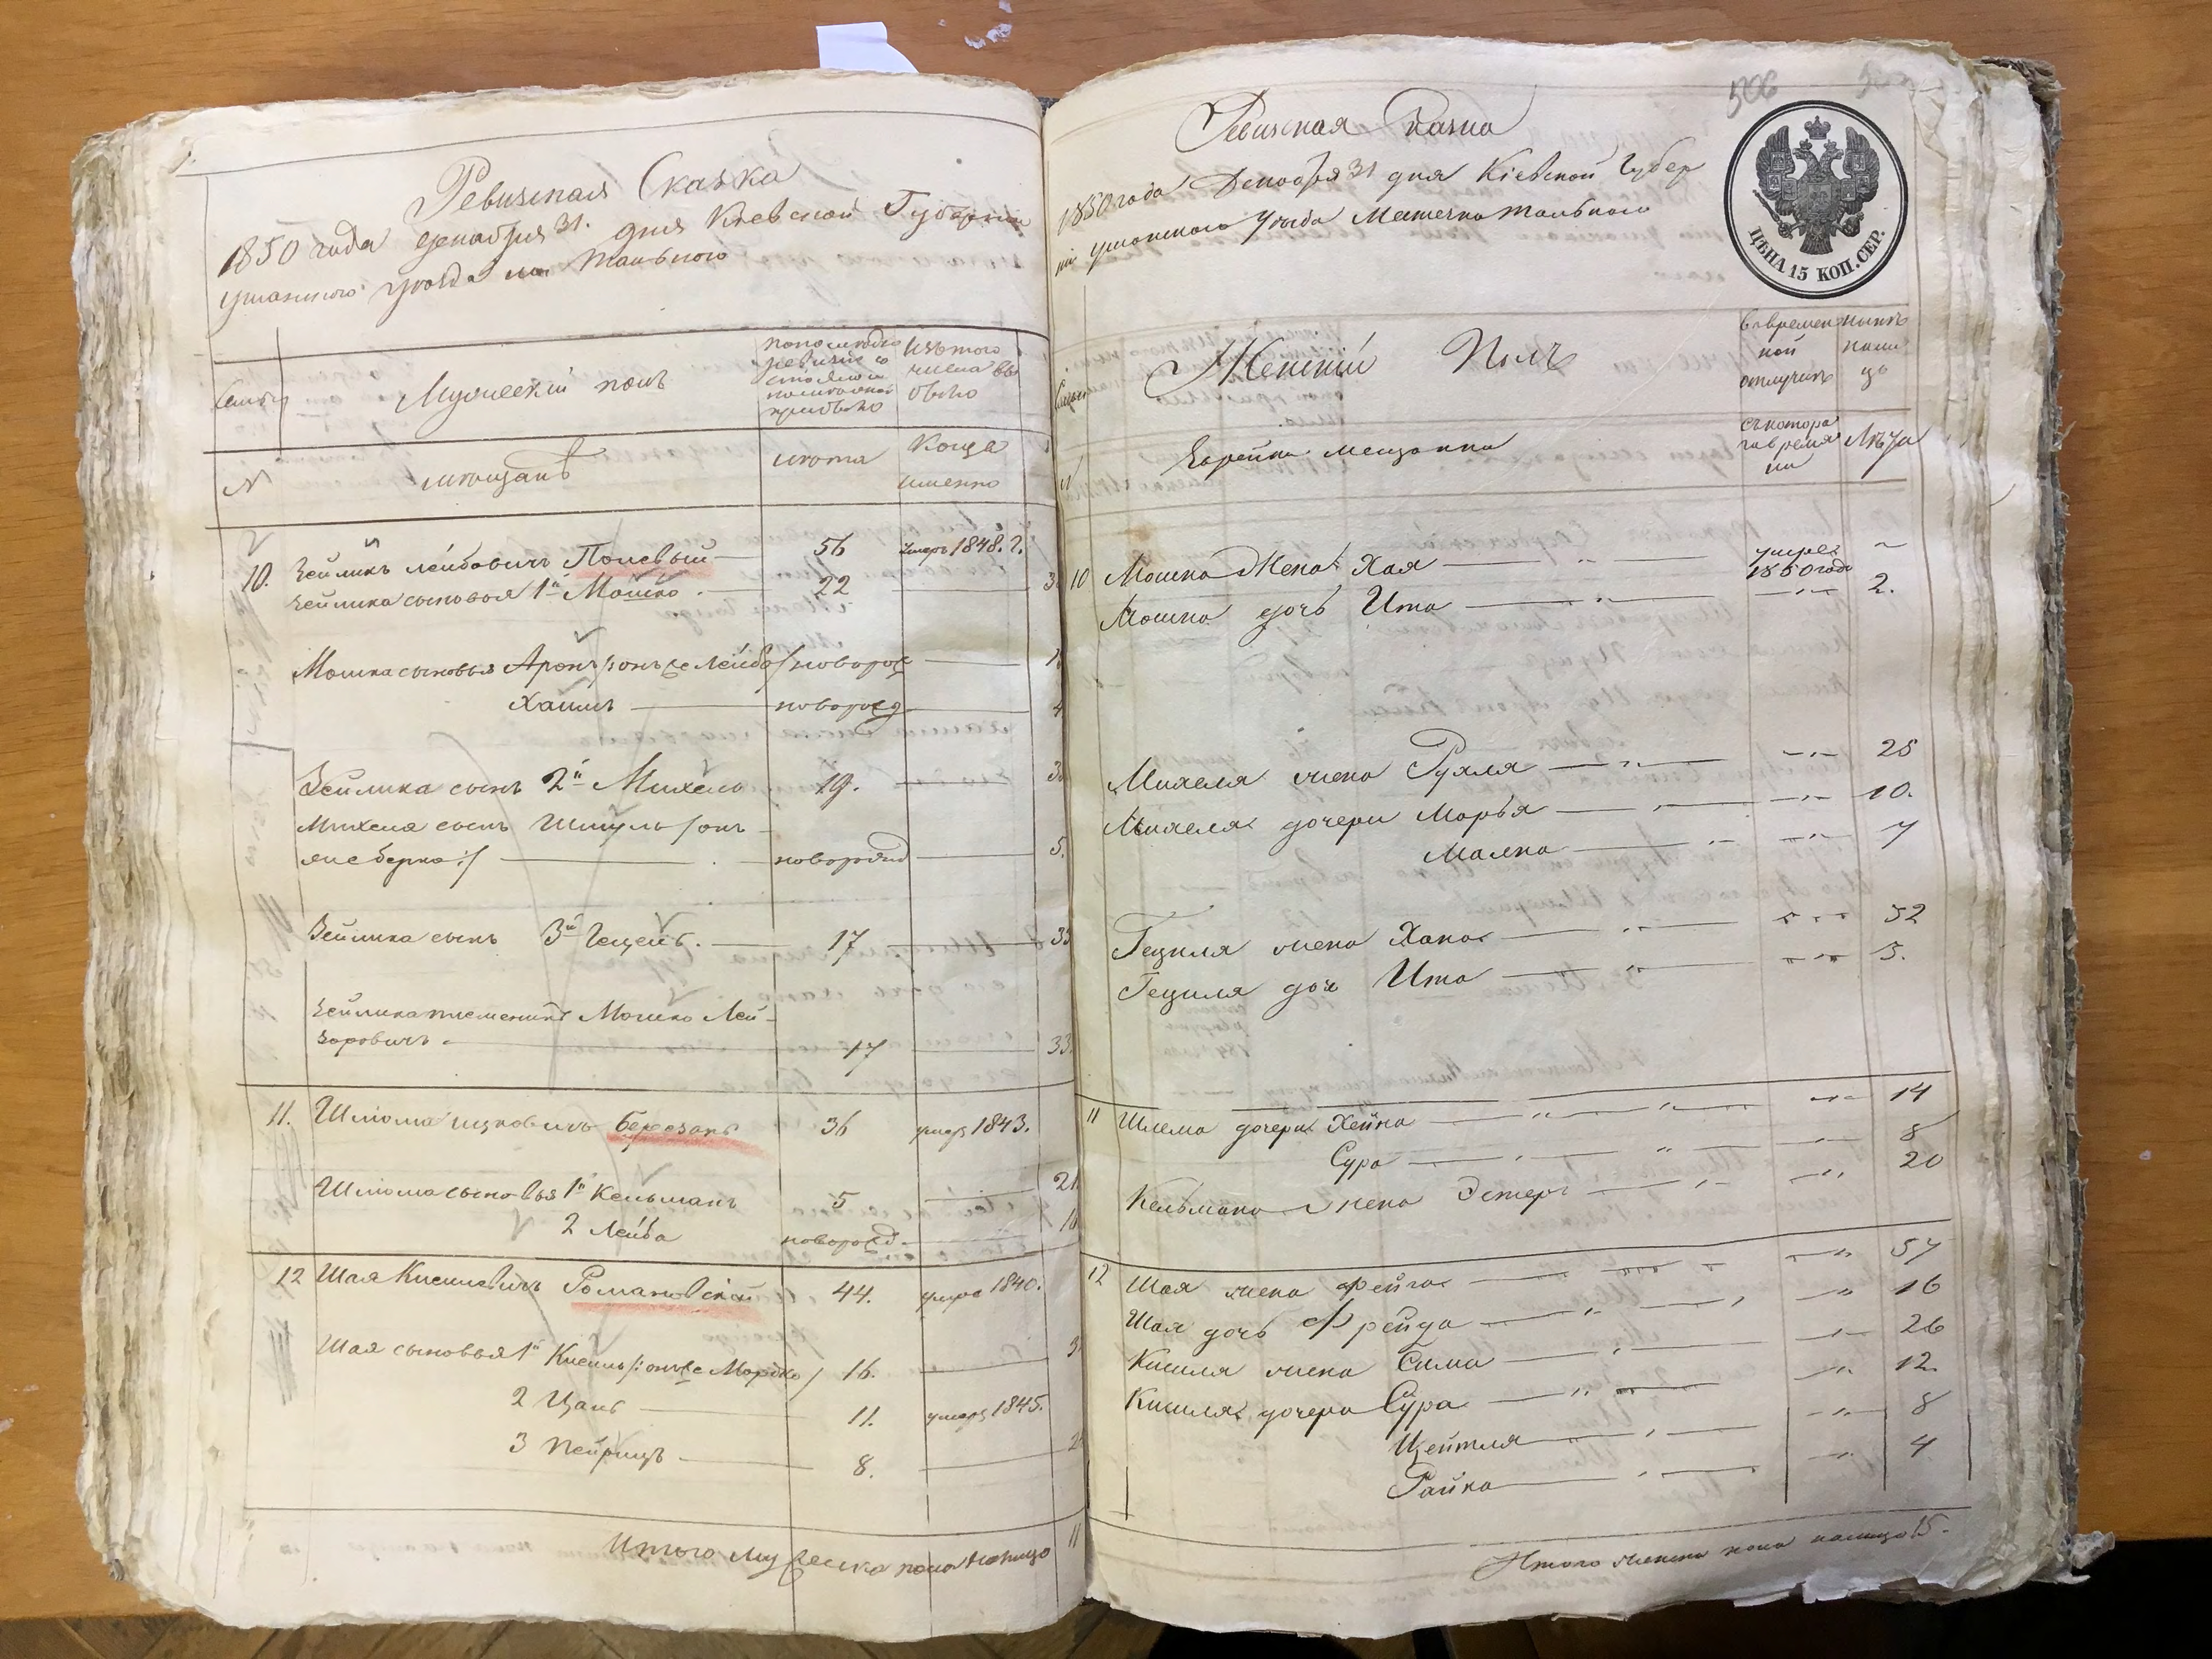 Ревизская Сказка
1850 года декабря 31. дня Киевской Губернии
уманского уезда м. Тального
Семьи
Мужеский полъ
по последней ревизии состояло и после оной прибыло
Изъ того числа выбыло
№
мещанъ
лета
Когда именно
10. Зейликъ Лейбовичъ Полевый — 56 умеръ 1848. г.
Зейлика сыновья 1й Мошко — 22
Мошка сыновья Аронъ /: онъ же Лейба / новорожд
Хаимъ — новорожд
Зейлика сынъ 2й Михель 19.
Михеля сынъ Шмуль / онъ
же Берко :/ — новорожд 5.
Зейлика сынъ 3й Гецель. — 17
Зейлика племяникъ Мошко Лей-
зоровичъ — 17 33
11. Шлиома Ицковичъ Березанъ 36 умеръ 1843.
Шлиома сыновья 1й Кельманъ 5 21
2 Лейба новорожд
12 Шая Кисилевичъ Романовскій 44. умеръ 1840.
Шая сыновья 1й Кисиль /: онъ же Мордко / 16.
2 Цаль — 11. умеръ 1845.
3 Пейрицъ — 8.
Итого мужеска пола налицо 11
506
Ревизская Сказка
1850 года Декабря 31 дня Кіевской Губер
ніи уманского уезда Местечка Тального
ЦѢНА 15 КОП. СЕР.
Женскій Полъ
Во временной отлучкѣ
нынѣ налицо
Еврейки мещанки
съ котораго времени
Лѣта
10 Мошка Жена Хая — умерла 1850 года
Мошка дочь Ита — 2.
Михеля жена Рухля — 25
Михеля дочери Марья — 10.
Малка — 7
Гециля жена Хана — 32
Гециля доч Ита — 3.
11 Шлема дочери Хейна — 14
Сура — 8
Кельмана жена Эстеръ — 20
12 Шая жена Фейга — 57
Шая дочь Фрейда — 16
Кисиля жена Сима — 26
Кисиля дочери Сура — 12.
Цейтля — 8
Райка — 4
Итого женска пола налицо 15.